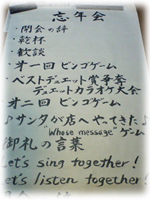 忘年会
・開会の辞
・乾杯
・歓談
・オ一回 ビンゴゲーム
・ベストデュエット賞争奪
デュエットカラオケ大会
オニ回 ビンゴゲーム
♪サンタが店へやってきた♪
"Whose message"ゲーム
御礼の言葉
Let's sing together!
Let's listen together!